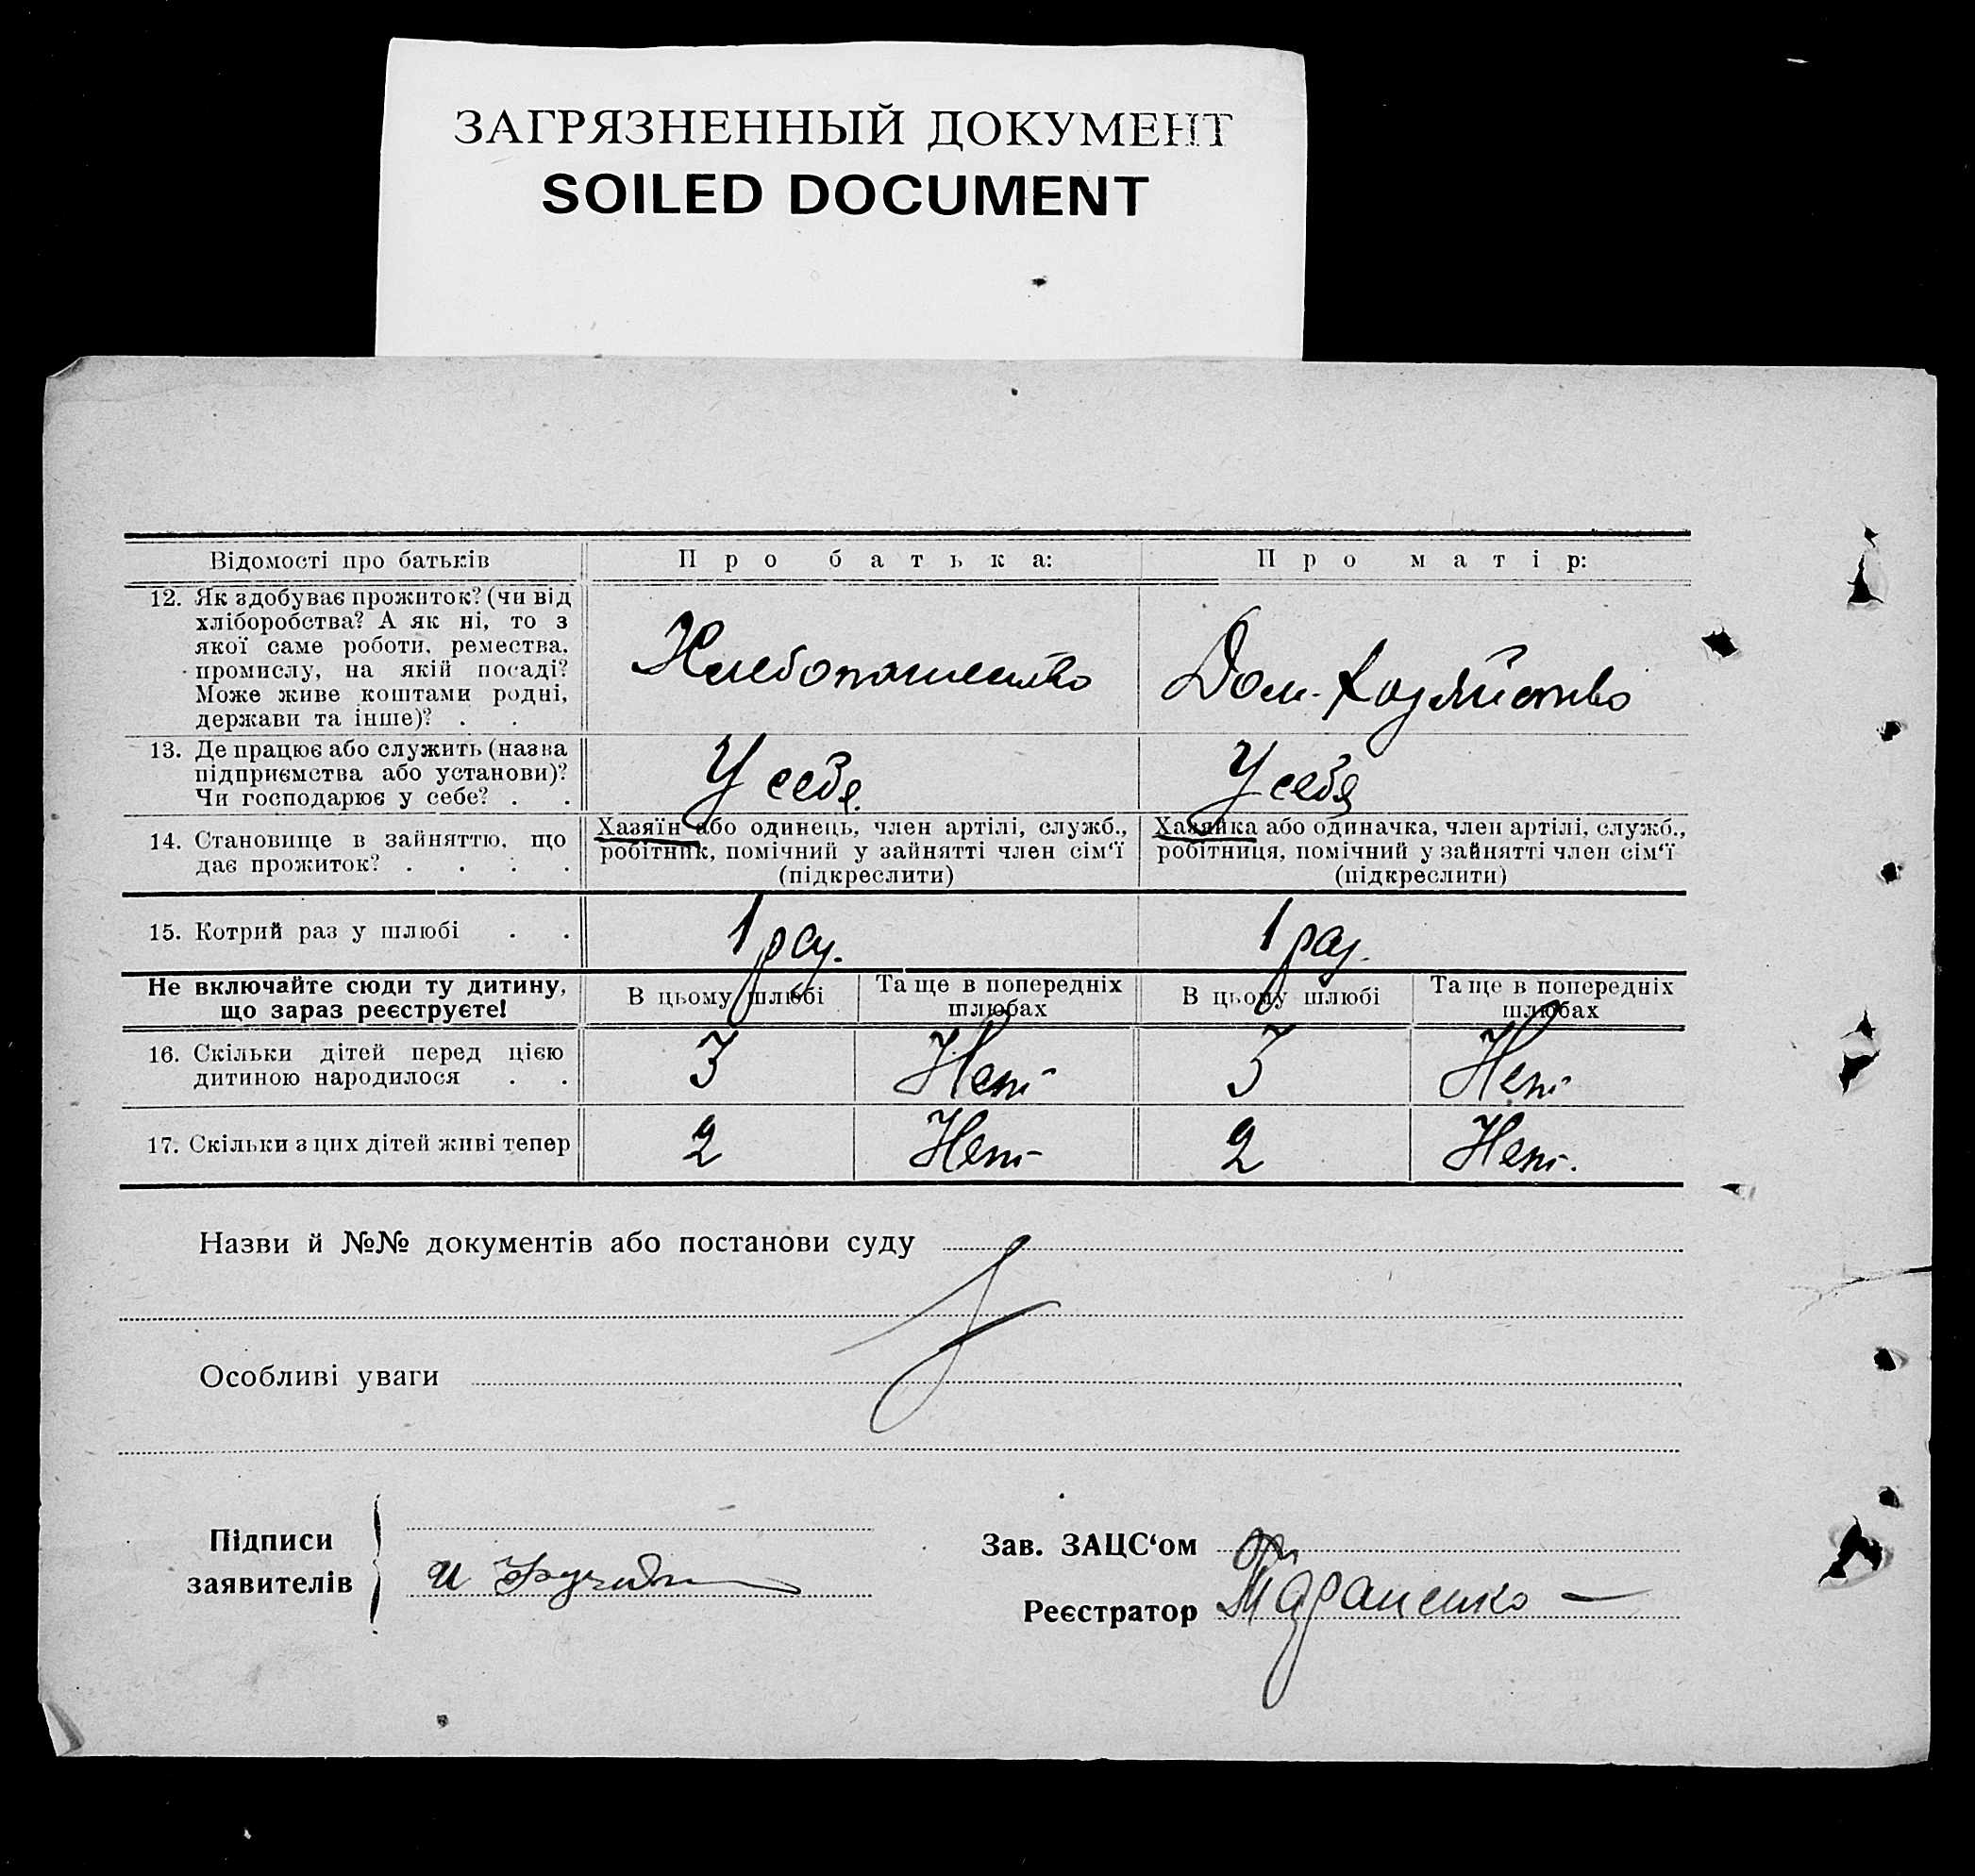 ЗАГРЯЗНЕННЫЙ ДОКУМЕНТ
SOILED DOCUMENT
Відомості про батьків
Про батька:
Про матір:
12. Як здобуває прожиток? (чи від
хліборобства? А як ні, то з
якої саме роботи, ремества,
промислу, на якій посаді?
Може живе коштами родні,
держави та інше)? . .
Хлебопашество
Дом. Хозяйство
13. Де працює або служить (назва
підприємства або установи)?
Чи господарює у себе? . .
У себя.
У себя
14. Становище в зайняттю, що
дає прожиток? . . . .
Хазяїн або одинець, член артілі, служб.,
робітник, помічний у зайнятті член сім'ї
(підкреслити)
Хазяйка або одиначка, член артілі, служб.,
робітниця, помічний у зайнятті член сім'ї
(підкреслити)
15. Котрий раз у шлюбі . .
1 раз.
1 раз.
Не включайте сюди ту дитину,
що зараз реєструєте!
В цьому шлюбі
Та ще в попередніх
шлюбах
В цьому шлюбі
Та ще в попередніх
шлюбах
16. Скільки дітей перед цією
дитиною народилося . .
3
Нет
3
Нет
17. Скільки з цих дітей живі тепер
2
Нет
2
Нет.
Назви й №№ документів або постанови суду
Особливі уваги
Підписи
заявителів
Зав. ЗАЦС'ом
Реєстратор